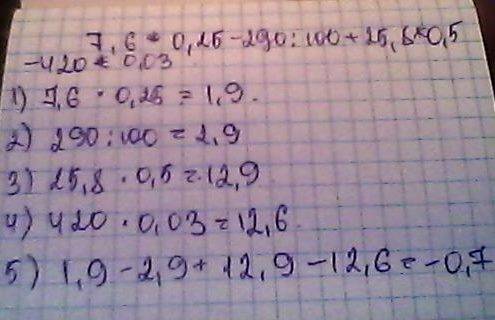 7,6 * 0,25 - 290 : 100 + 25,8 * 0,5
- 420 * 0,03
1) 7,6 · 0,25 = 1,9.
2) 290 : 100 = 2,9
3) 25,8 · 0,5 = 12,9
4) 420 · 0,03 = 12,6.
5) 1,9 - 2,9 + 12,9 - 12,6 = -0,7